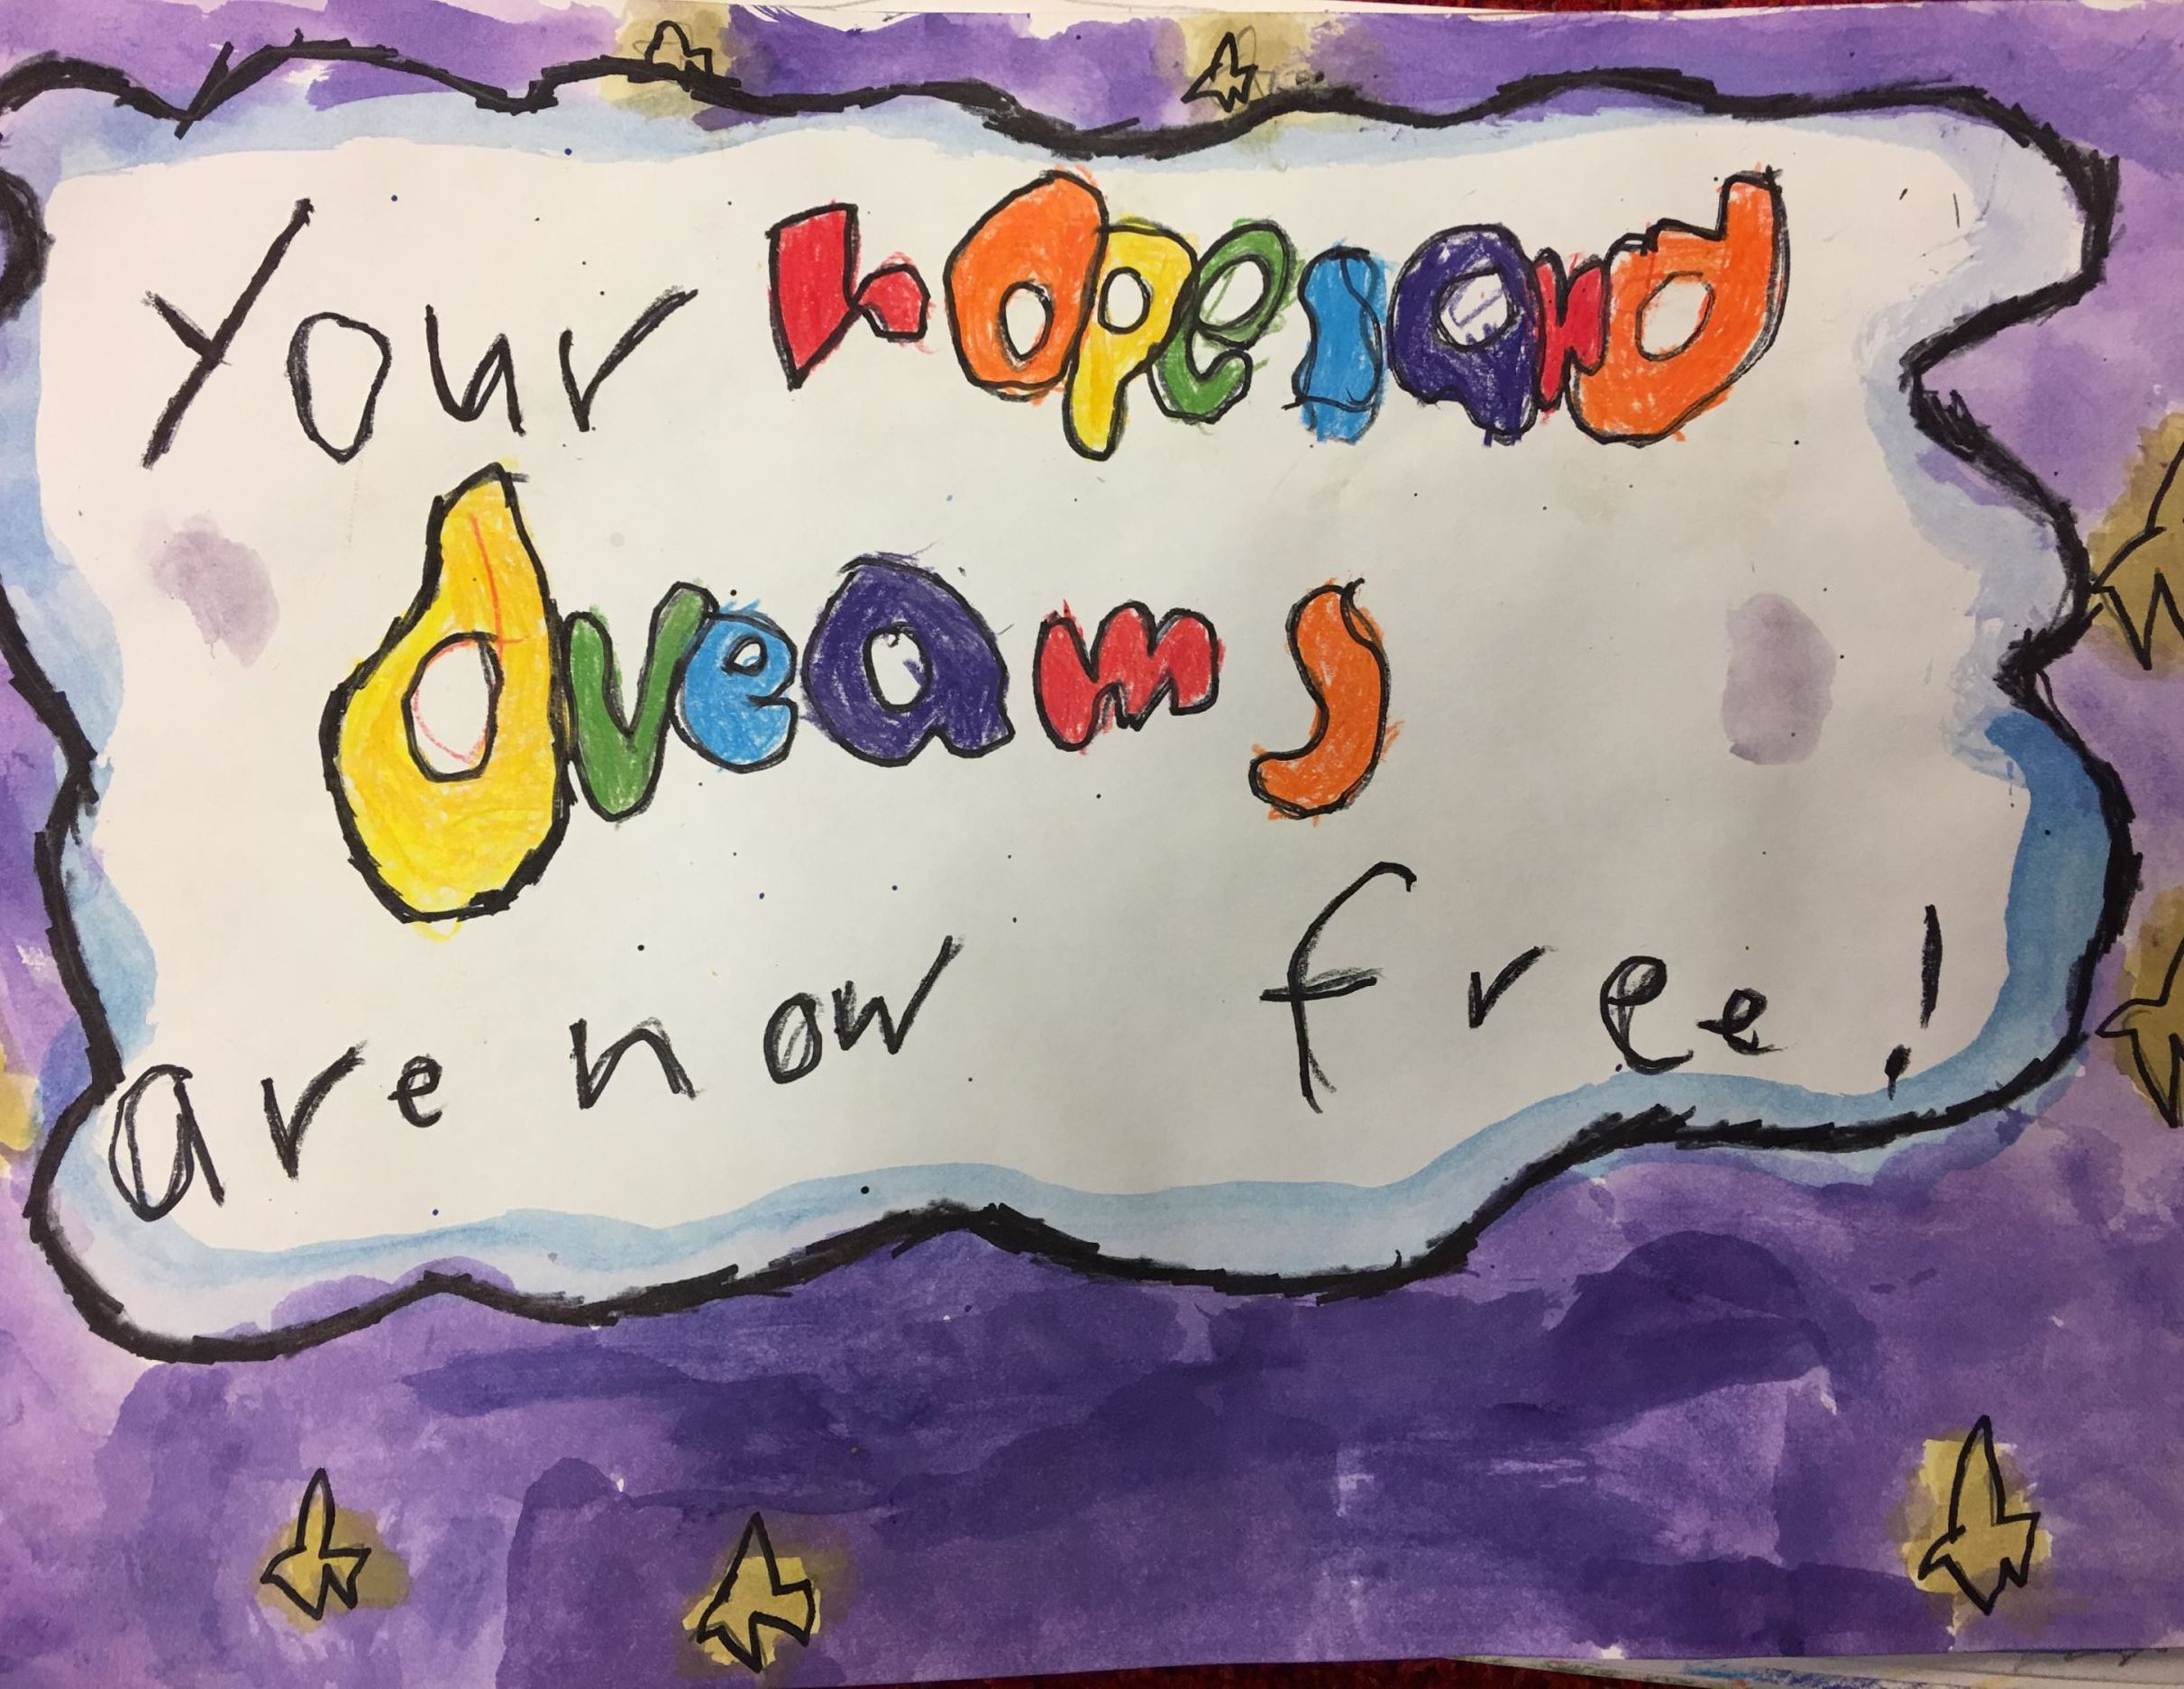 Your hopes and
dreams
are now free!